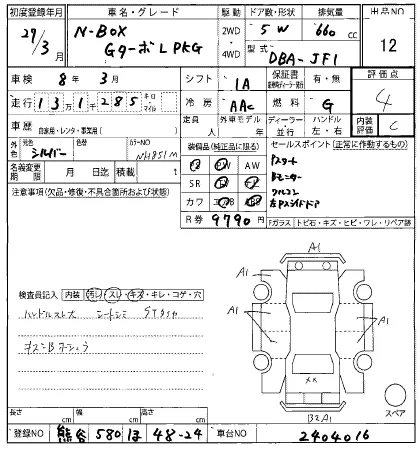 初度登録年月 車名・グレード 駆動 ドア数・形状 排気量 出品NO
27/3月 N-BOX 2WD 5 W 660 cc 12
Gターボ L PKG 4WD 型式 DBA-JF1
車検 8年 3月 シフト IA 保証書 有・無 評価点
走行 131285 キロ・マイル 冷房 AAC 燃料 G 4
車歴 自家用・レンタ・事業用( ) 定員 人 外車モデル 年 ディーラー 並行 ハンドル 左・右 内装評価 C
外色 元色 シルバー 色替 カラーNO NH851M 装備品(純正品に限る) セールスポイント(正常に作動するもの)
名義変更期限 月 日迄 積載 t PS PW AW Pスタート
注意事項(欠品・修復・不具合箇所および状態) SR Bモニター
カワ
R券 9790円 左Pスライドドア
Fガラス トビ石・キズ・ヒビ・ワレ・リペア跡
A1
A1 A1
検査員記入 内装 汚レ・スレ・キズ・キレ・コゲ・穴
ハンドルスレ大 シートシミ A1 A1
XX
長さ cm 幅 cm 高さ cm B2A1 スペア
登録NO 熊谷 580 ほ 48-24 車台NO 2404016